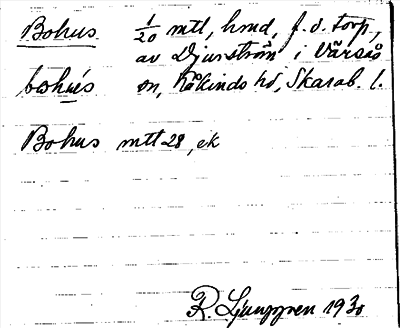 Bohus 1/20 mtl, hmd, f. d. torp,
av Djurström i Värsås
bohus sn, Kåkinds hd, Skarab. l.
Bohus mtl 28, ek
R. Ljunggren 1930